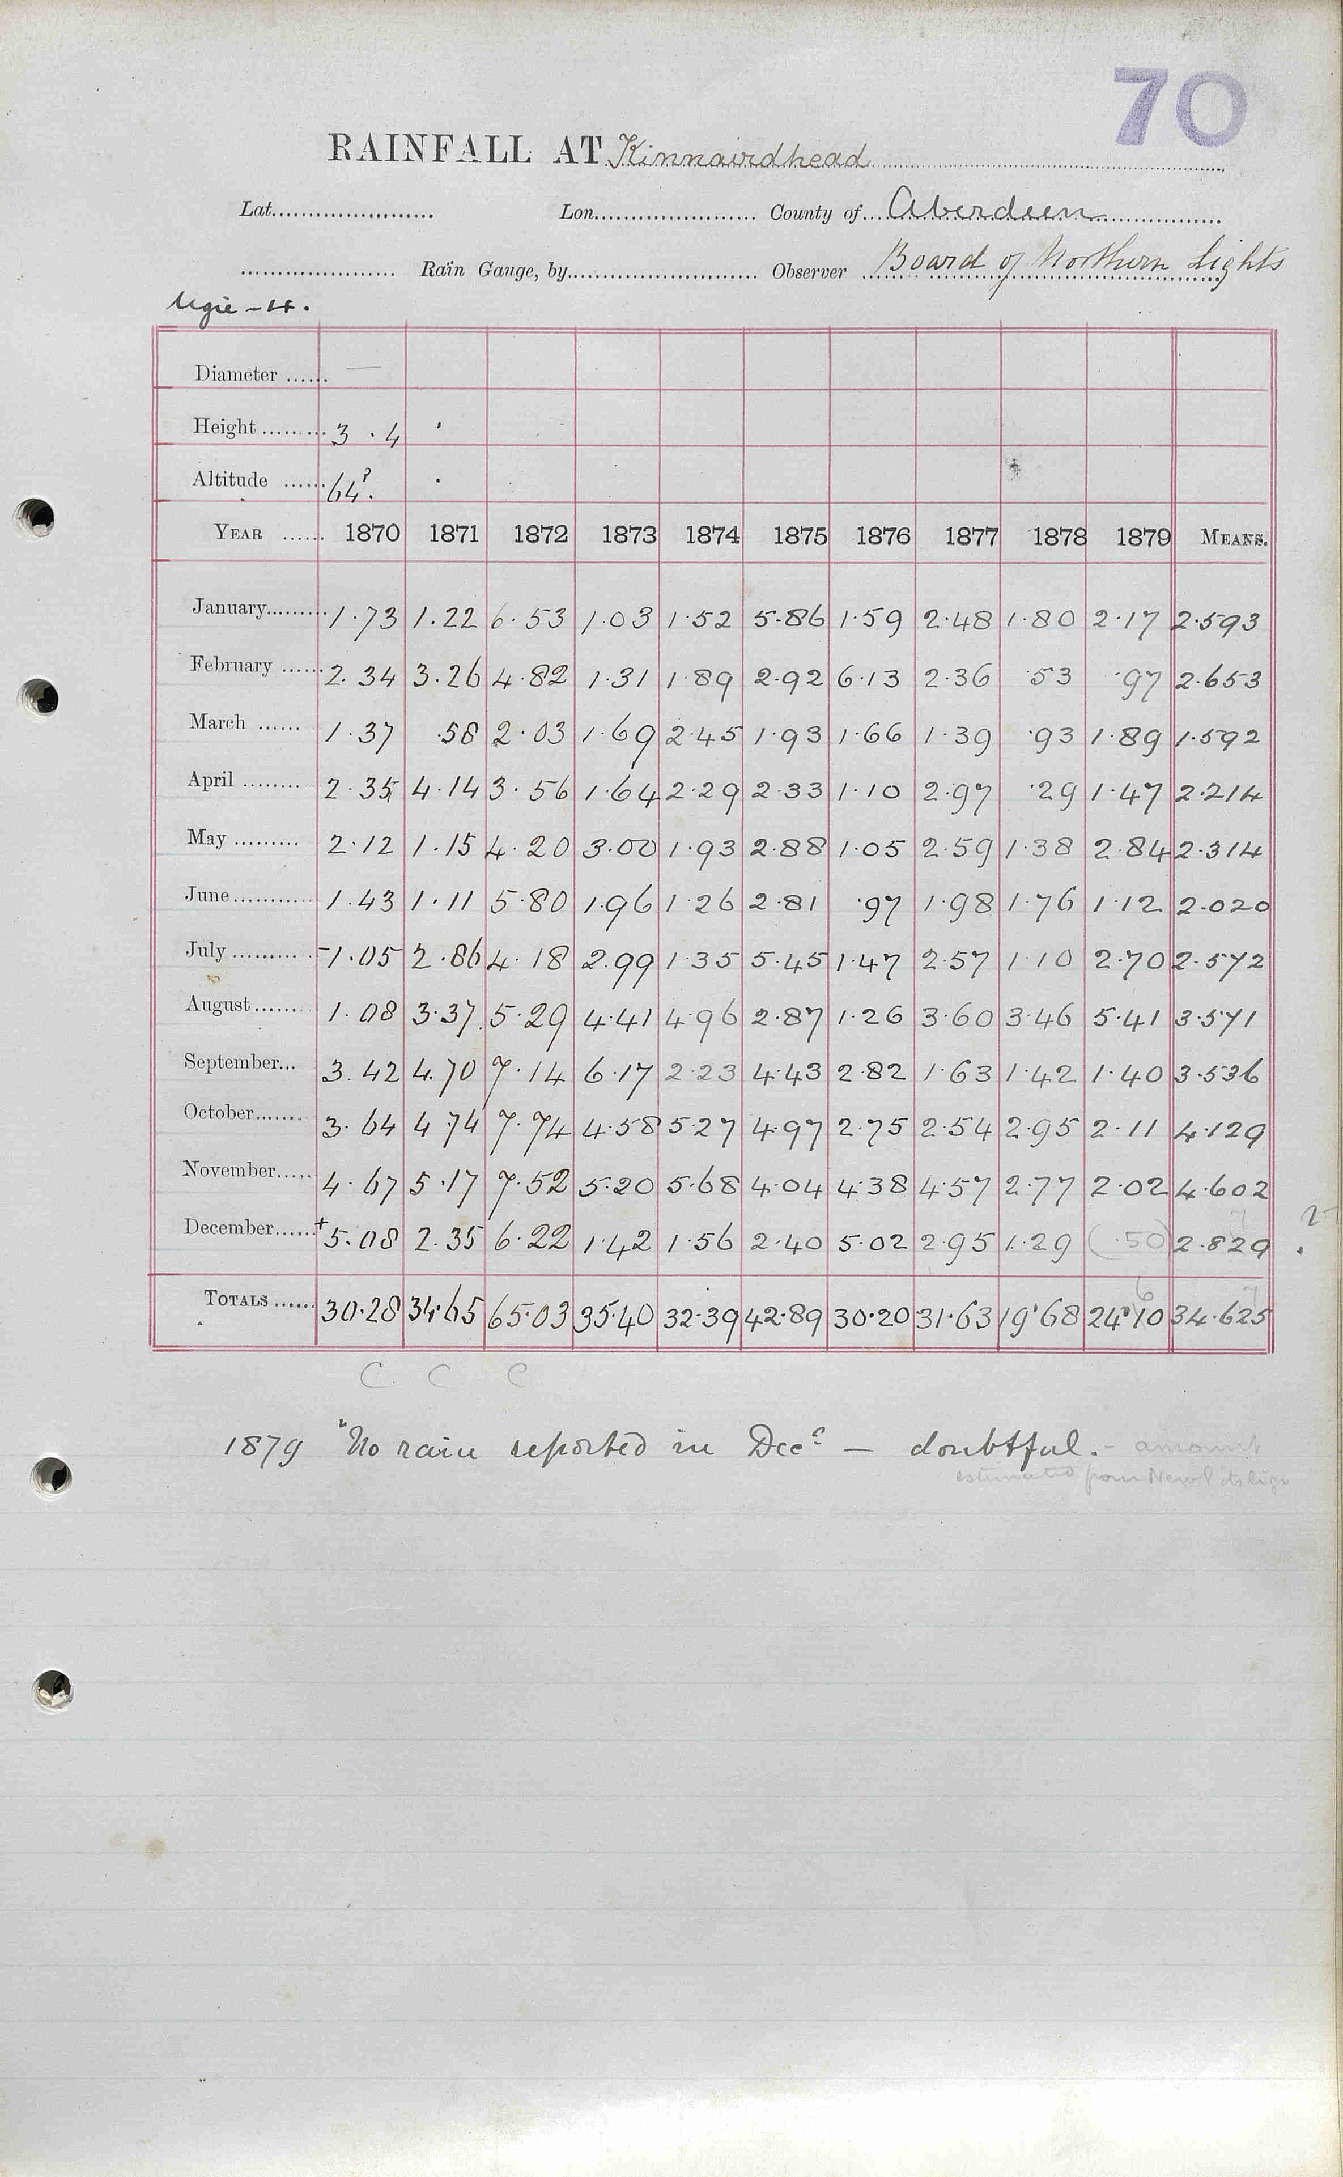 70
RAINFALL AT Kinnairdhead
Lat. Lon. County of Aberdeen
Rain Gauge, by Observer Board of Northern Lights
Ugie - 4.
Diameter —
Height 3 . 4
Altitude 64?
YEAR 1870 1871 1872 1873 1874 1875 1876 1877 1878 1879 MEANS.
January 1.73 1.22 6.53 1.03 1.52 5.86 1.59 2.48 1.80 2.17 2.593
February 2.34 3.26 4.82 1.31 1.89 2.92 6.13 2.36 .53 .97 2.653
March 1.37 .58 2.03 1.69 2.45 1.93 1.66 1.39 .93 1.89 1.592
April 2.35 4.14 3.56 1.64 2.29 2.33 1.10 2.97 .29 1.47 2.214
May 2.12 1.15 4.20 3.00 1.93 2.88 1.05 2.59 1.38 2.84 2.314
June 1.43 1.11 5.80 1.96 1.26 2.81 .97 1.98 1.76 1.12 2.020
July 1.05 2.86 4.18 2.99 1.35 5.45 1.47 2.57 1.10 2.70 2.572
August 1.08 3.37 5.29 4.41 4.96 2.87 1.26 3.60 3.46 5.41 3.571
September 3.42 4.70 7.14 6.17 2.23 4.43 2.82 1.63 1.42 1.40 3.536
October 3.64 4.74 7.74 4.58 5.27 4.97 2.75 2.54 2.95 2.11 4.129
November 4.67 5.17 7.52 5.20 5.68 4.04 4.38 4.57 2.77 2.02 4.602
7
December +5.08 2.35 6.22 1.42 1.56 2.40 5.02 2.95 1.29 (.50) 2.829
6 7
TOTALS 30.28 34.65 65.03 35.40 32.39 42.89 30.20 31.63 19.68 24.10 34.625
C C C
1879 "No rain reported in Decr — doubtful. - amount
estimated from